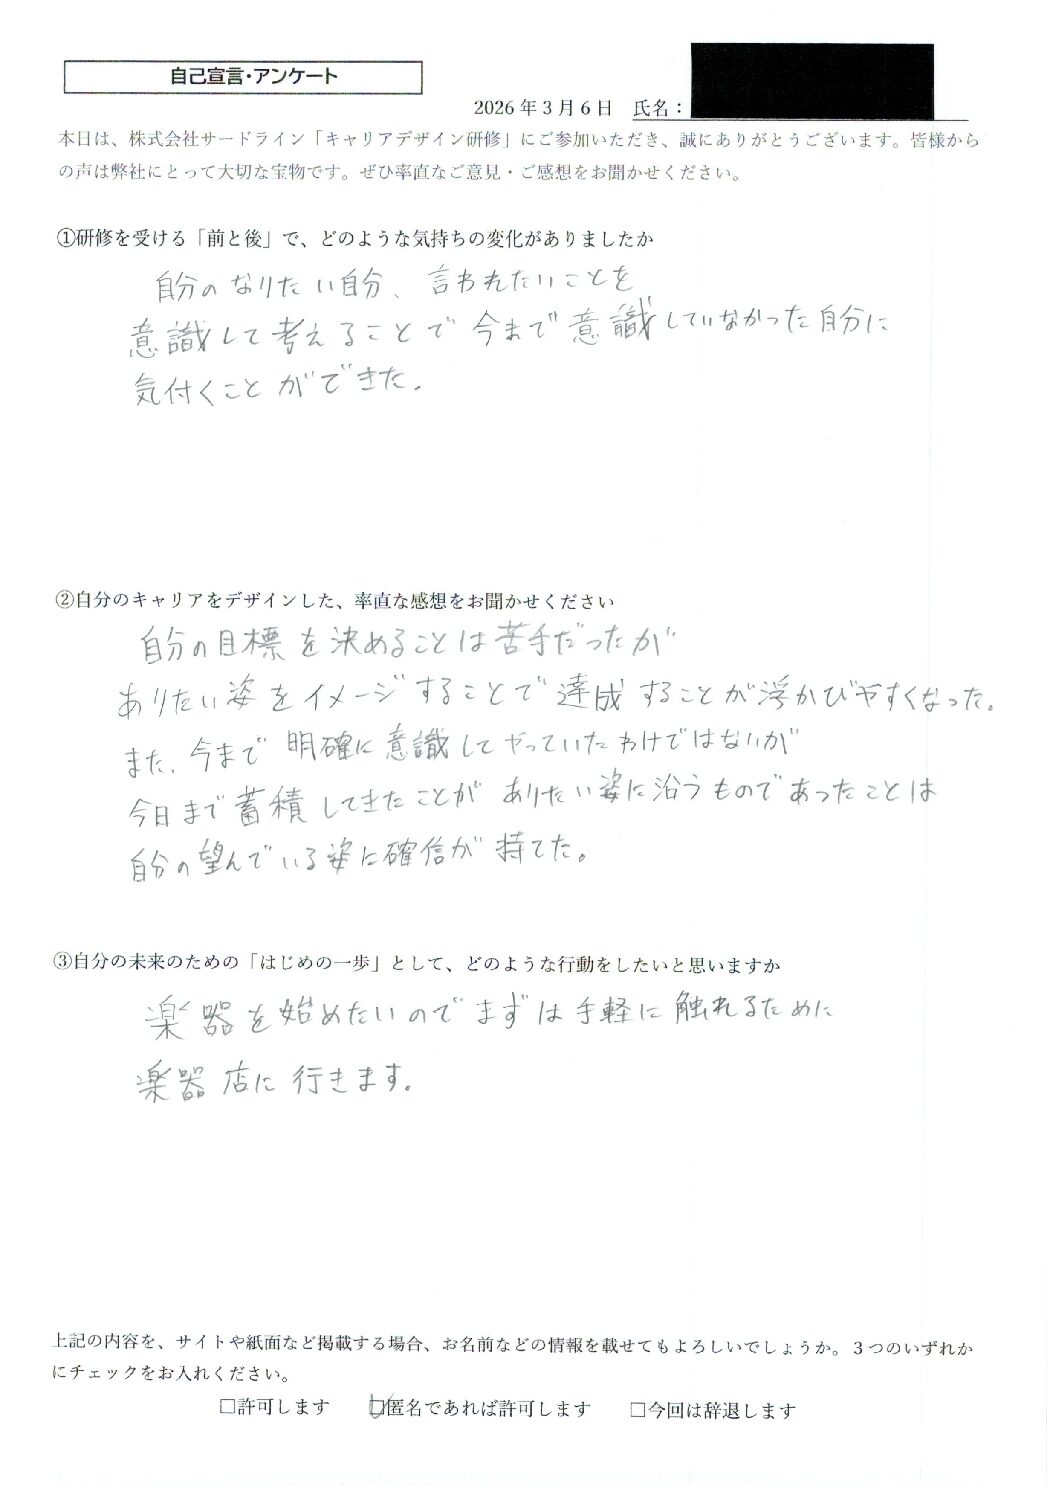 自己宣言・アンケート
2026年3月6日 氏名：
本日は、株式会社サードライン「キャリアデザイン研修」にご参加いただき、誠にありがとうございます。皆様から
の声は弊社にとって大切な宝物です。ぜひ率直なご意見・ご感想をお聞かせください。
①研修を受ける「前と後」で、どのような気持ちの変化がありましたか
自分のなりたい自分、言われたいことを
意識して考えることで今まで意識していなかった自分に
気付くことができた.
②自分のキャリアをデザインした、率直な感想をお聞かせください
自分の目標を決めることは苦手だったが
ありたい姿をイメージすることで達成することが浮かびやすくなった。
また、今まで明確に意識してやっていたわけではないが
今日まで蓄積してきたことがありたい姿に沿うものであったことは
自分の望んでいる姿に確信が持てた。
③自分の未来のための「はじめの一歩」として、どのような行動をしたいと思いますか
楽器を始めたいのでまずは手軽に触れるために
楽器店に行きます。
上記の内容を、サイトや紙面など掲載する場合、お名前などの情報を載せてもよろしいでしょうか。３つのいずれか
にチェックをお入れください。
□許可します ☑匿名であれば許可します □今回は辞退します